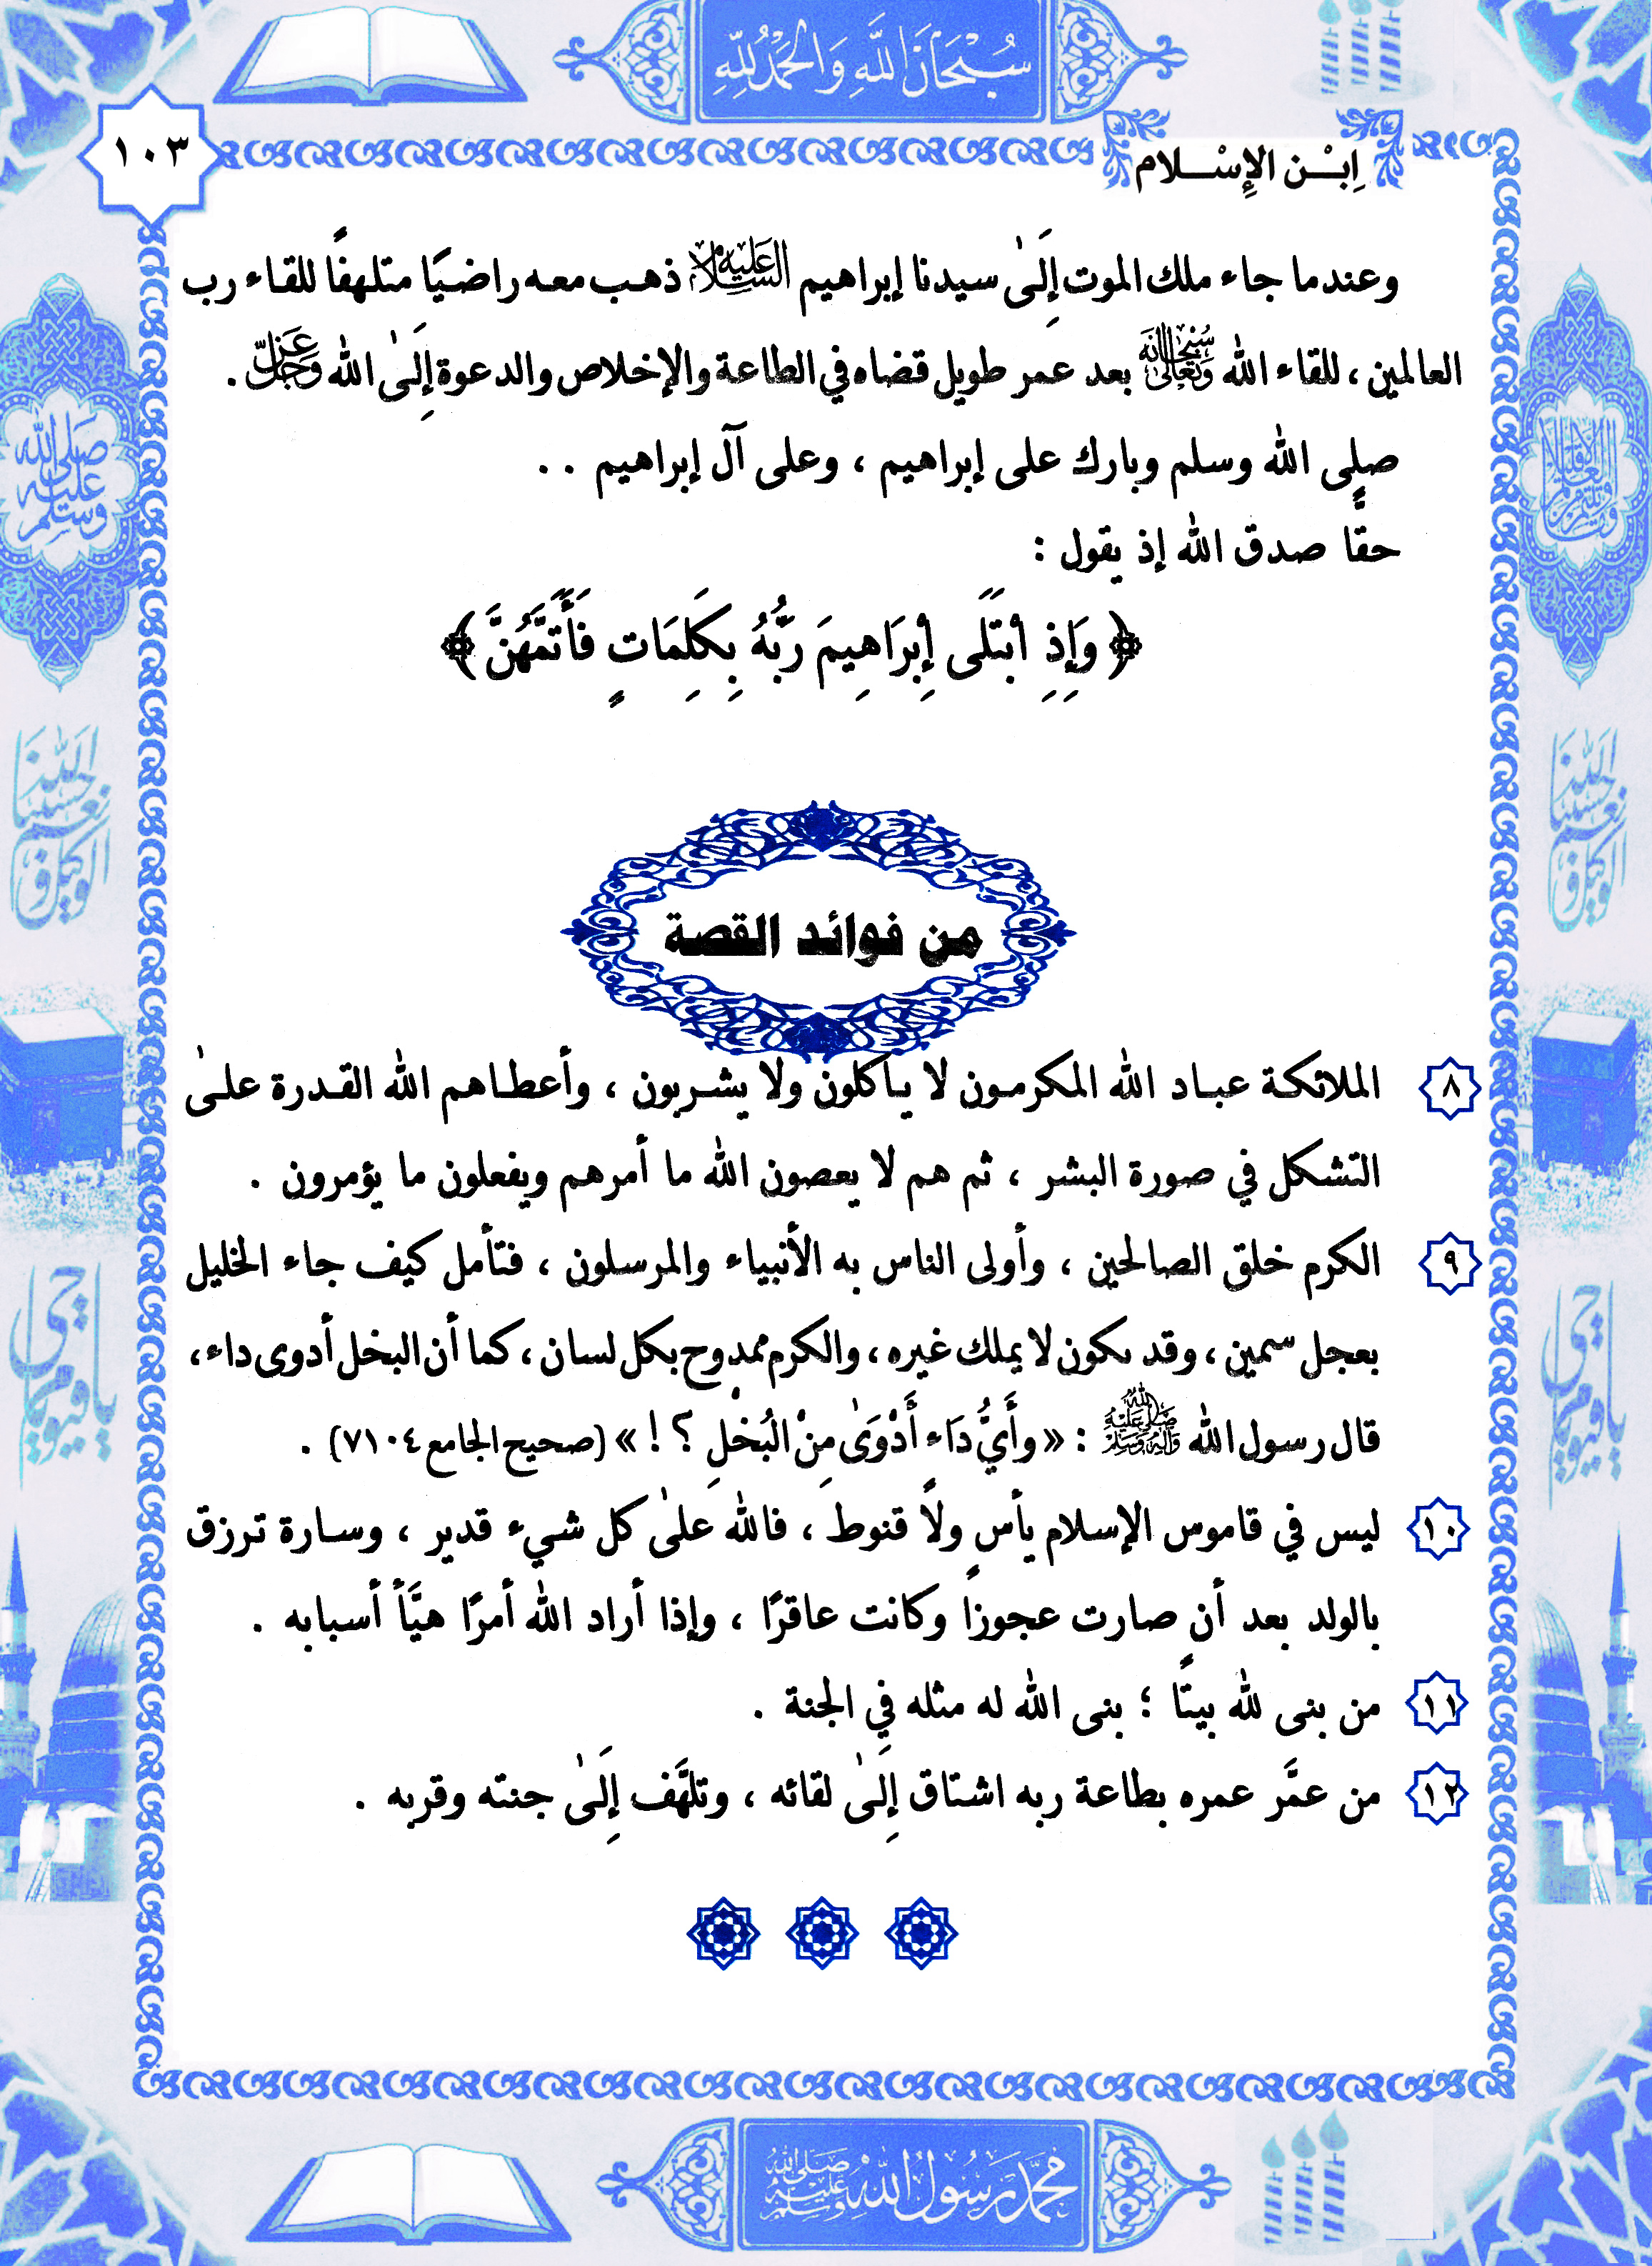 سُبْحَانَ اللَّهِ وَالْحَمْدُ لِلَّهِ
١٠٣
اِبْـن الإِسْـلام
وعندما جاء ملك الموت إِلَىٰ سيدنا إبراهيم عَلَيْهِ السَّلَام ذهب معه راضيًا متلهفًا للقاء رب
العالمين ، للقاء الله سُبْحَانَهُ وَتَعَالَىٰ بعد عمر طويل قضاه في الطاعة والإخلاص والدعوة إِلَىٰ الله عَزَّ وَجَلَّ .
صلى الله وسلم وبارك على إبراهيم ، وعلى آل إبراهيم . .
حقًّا صدق الله إذ يقول :
﴿ وَإِذِ ٱبْتَلَى إِبْرَاهِيمَ رَبُّهُ بِكَلِمَاتٍ فَأَتَمَّهُنَّ ﴾
من فوائد القصة
٨ الملائكة عباد الله المكرمون لا يأكلون ولا يشربون ، وأعطاهم الله القدرة علىٰ
التشكل في صورة البشر ، ثم هم لا يعصون الله ما أمرهم ويفعلون ما يؤمرون .
٩ الكرم خلق الصالحين ، وأولى الناس به الأنبياء والمرسلون ، فتأمل كيف جاء الخليل
بعجل سمين ، وقد يكون لا يملك غيره ، والكرم ممدوح بكل لسان ، كما أن البخل أدوى داء ،
قال رسول الله صَلَّى اللَّهُ عَلَيْهِ وَآلِهِ وَسَلَّمَ : « وأَيُّ دَاء أَدْوَىٰ مِنْ الْبُخْلِ ؟ ! » (صحيح الجامع ٧١٠٤) .
١٠ ليس في قاموس الإسلام يأس ولا قنوط ، فالله علىٰ كل شيء قدير ، وسارة ترزق
بالولد بعد أن صارت عجوزًا وكانت عاقرًا ، وإذا أراد الله أمرًا هيَّأ أسبابه .
١١ من بنى لله بيتًا ؛ بنى الله له مثله فِي الجنة .
١٢ من عمَّر عمره بطاعة ربه اشتاق إِلَىٰ لقائه ، وتلهَّف إِلَىٰ جنته وقربه .
صلى الله عليه وسلم
حسبنا الله ونعم الوكيل
يا حي يا قيوم
حسبنا الله ونعم الوكيل
يا حي يا قيوم
محمد رسول الله صلى الله عليه وسلم